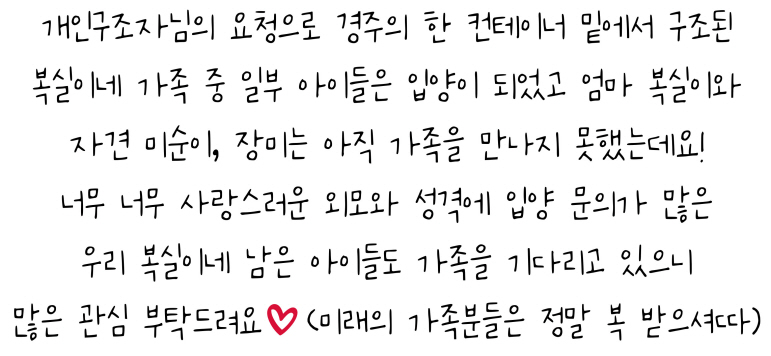 개인구조자님의 요청으로 경주의 한 컨테이너 밑에서 구조된
복실이네 가족 중 일부 아이들은 입양이 되었고 엄마 복실이와
자견 미순이, 장미는 아직 가족을 만나지 못했는데요!
너무 너무 사랑스러운 외모와 성격에 입양 문의가 많은
우리 복실이네 남은 아이들도 가족을 기다리고 있으니
많은 관심 부탁드려요♡ (미래의 가족분들은 정말 복 받으셔따)